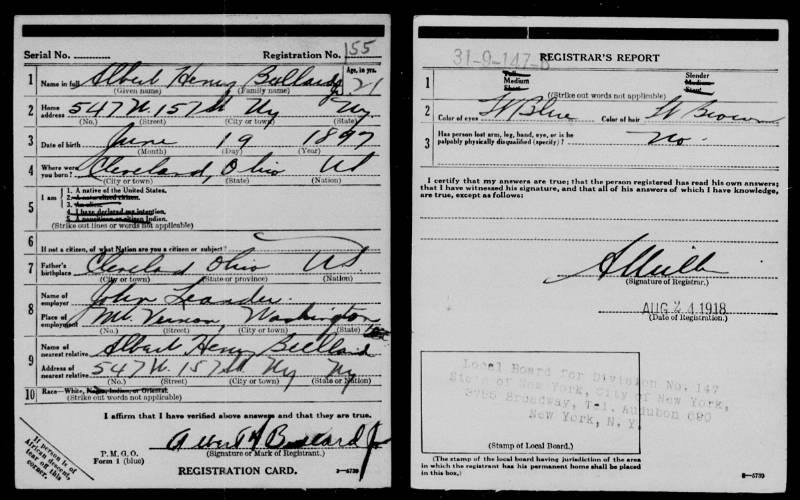 Serial No. Registration No. 155
1 Name in full Albert Henry Bullard Jr Age, in yrs. 21
(Given name) (Family name)
2 Home address 547 W. 157th Ny Ny
(No.) (Street) (City or town) (State)
3 Date of birth June 19 1897
(Month) (Day) (Year)
4 Where were you born? Cleveland, Ohio US
(City or town) (State) (Nation)
5 I am
1. A native of the United States.
2. A naturalized citizen.
3. An alien.
4. I have declared my intention.
5. A noncitizen or citizen Indian.
(Strike out lines or words not applicable)
6 If not a citizen, of what Nation are you a citizen or subject?
7 Father's birthplace Cleveland Ohio US
(City or town) (State or province) (Nation)
8 Name of employer John Leander
Place of employment Mt. Vernon, Washington
(No.) (Street) (City or town) (State)
9 Name of nearest relative Albert Henry Bullard
Address of nearest relative 547 W. 157th Ny Ny
(No.) (Street) (City or town) (State or Nation)
10 Race—White, Negro, Indian, or Oriental.
(Strike out words not applicable)
I affirm that I have verified above answers and that they are true.
Albert H Bullard Jr
P. M. G. O.
Form 1 (blue)
(Signature or Mark of Registrant.)
REGISTRATION CARD.
3—6739
If person is of
African descent,
tear off this
corner.
31-9-147-B
REGISTRAR'S REPORT
1 Tall Medium Short Slender Medium Stout
(Strike out words not applicable)
2 Color of eyes Lt Blue Color of hair Lt Brown
3 Has person lost arm, leg, hand, eye, or is he
palpably physically disqualified (specify)? No.
I certify that my answers are true; that the person registered has read his own answers;
that I have witnessed his signature, and that all of his answers of which I have knowledge,
are true, except as follows:
(Signature of Registrar.)
AUG 24 1918
(Date of Registration.)
Local Board for Division No. 147
State of New York, City of New York,
3755 Broadway, Tel. Audubon 690
New York, N. Y.
(Stamp of Local Board.)
(The stamp of the local board having jurisdiction of the area
in which the registrant has his permanent home shall be placed
in this box.)
3—6739